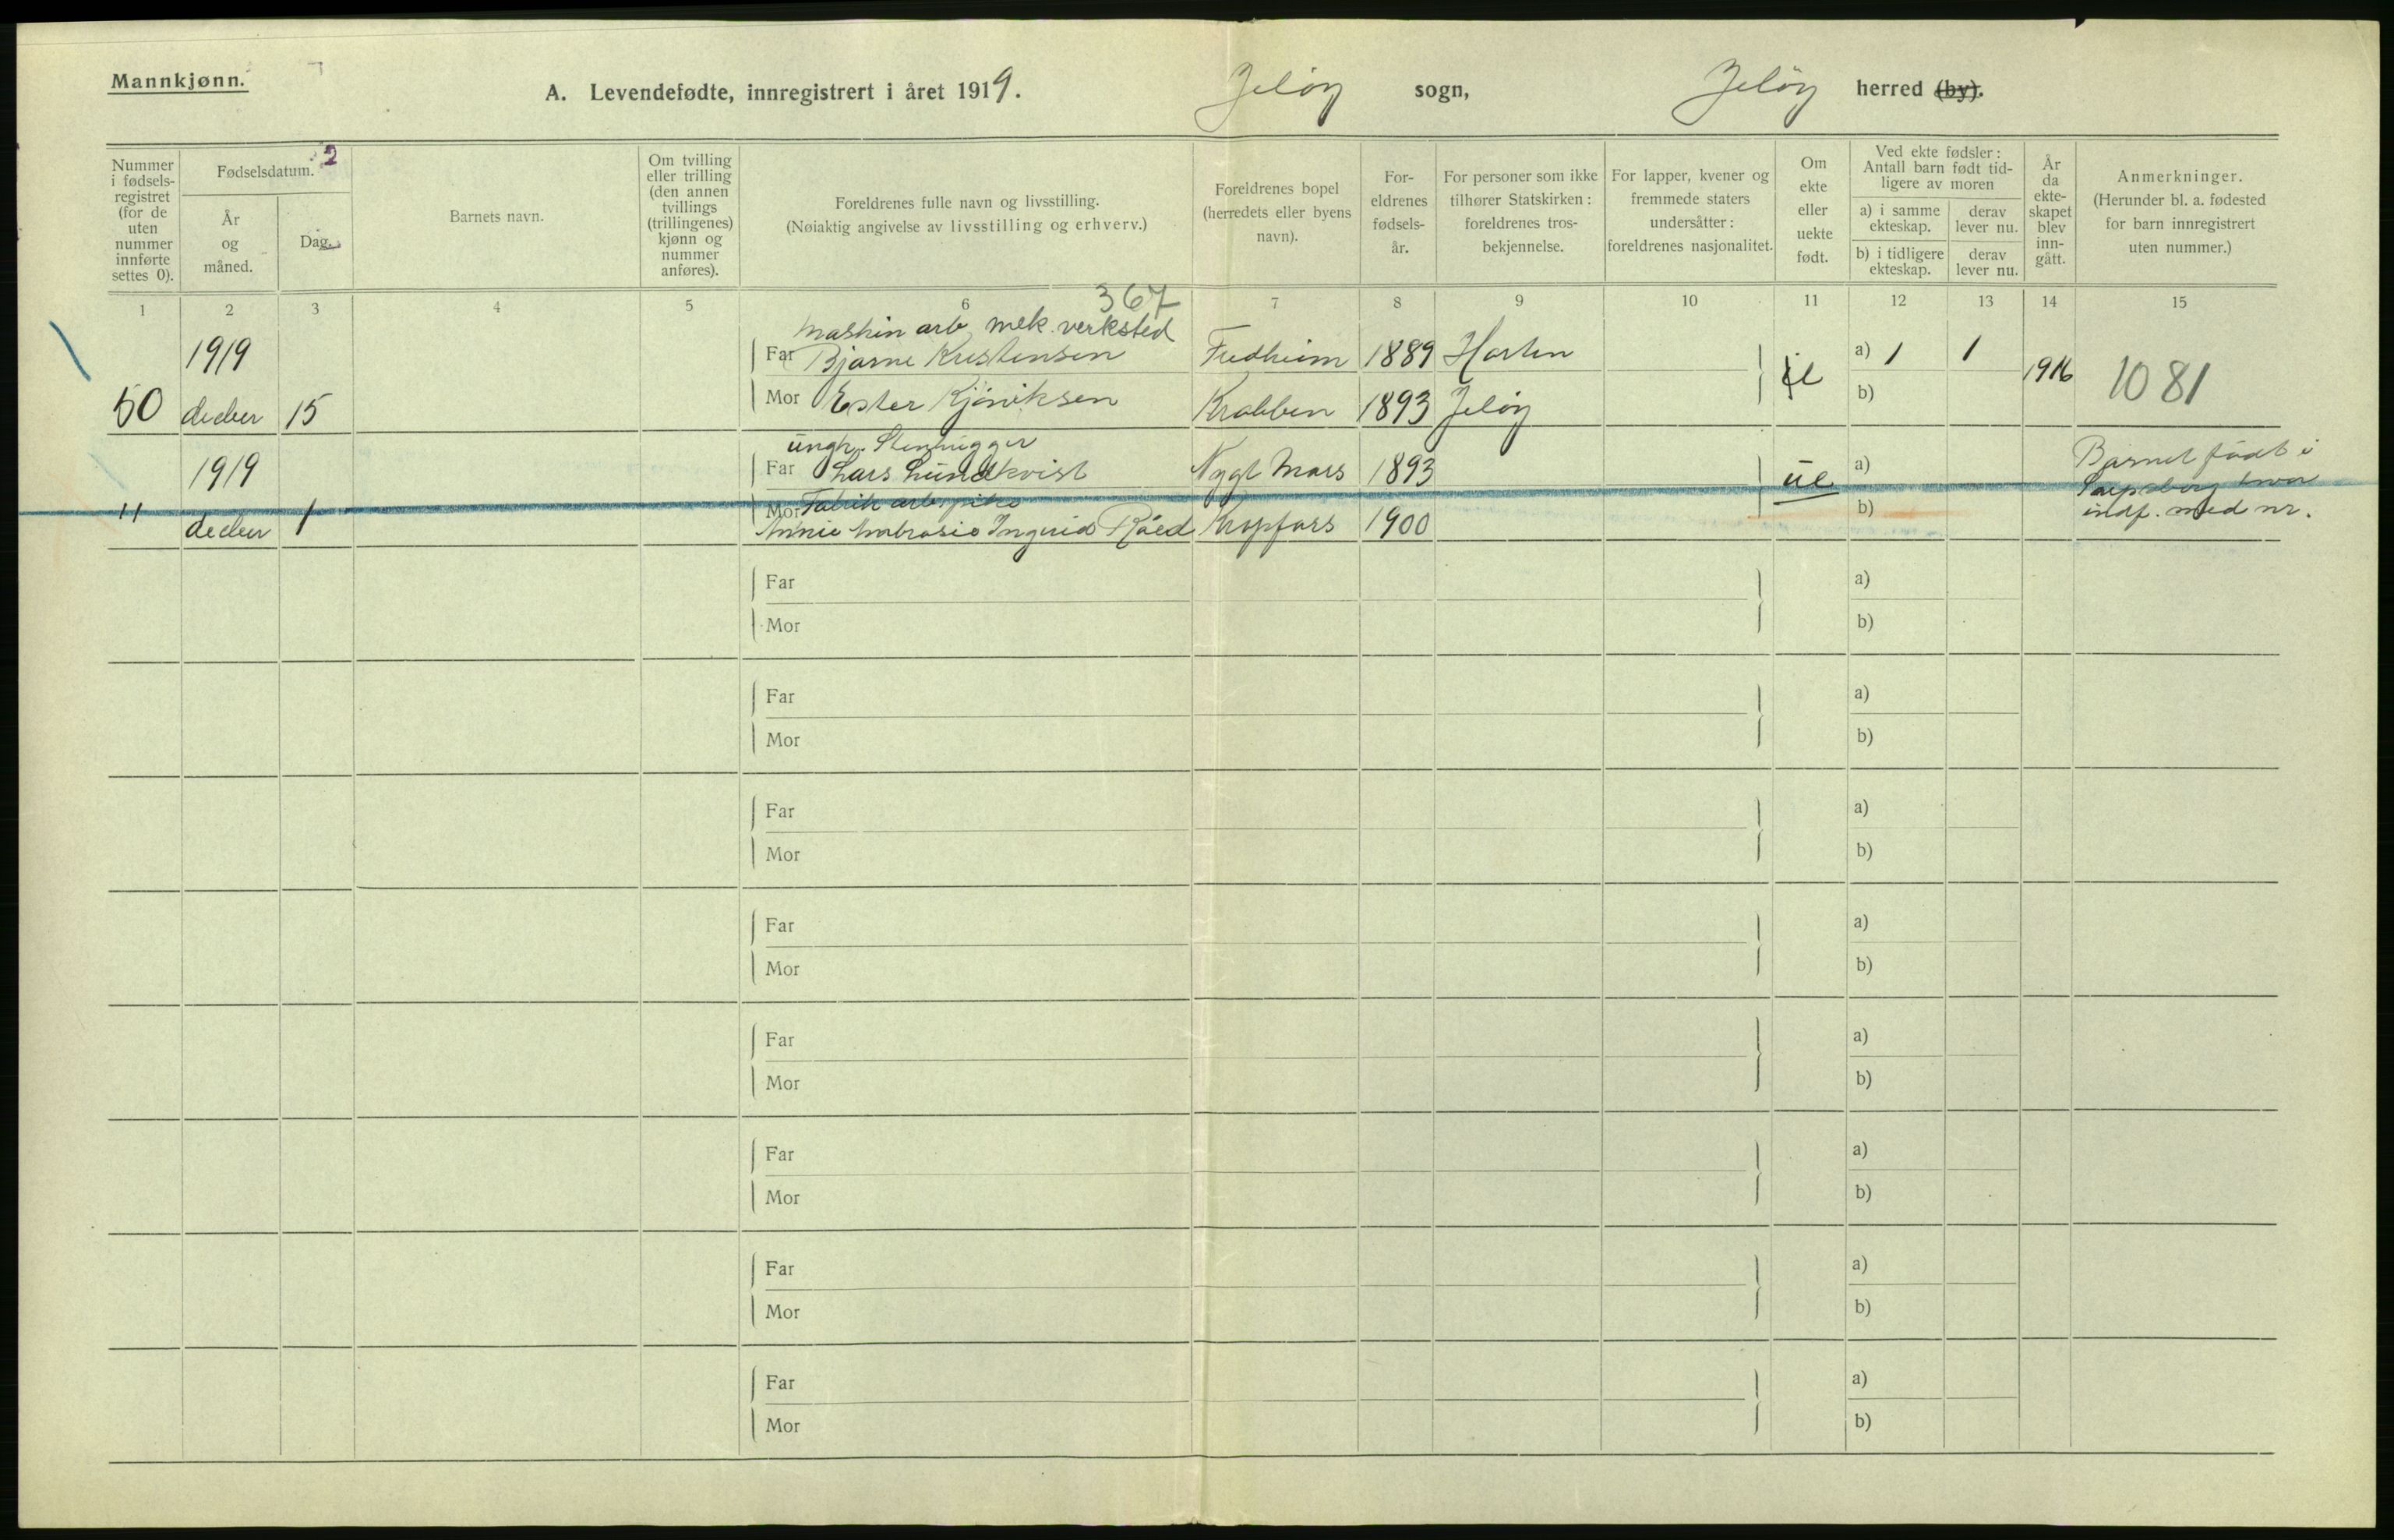 Mannkjønn.
A. Levendefødte, innregistrert i året 1919. Jeløy sogn, Jeløy herred (by).
Nummer i fødsels-registret (for de uten nummer innførte settes 0).
Fødselsdatum. 2
År og måned.
Dag.
Barnets navn.
Om tvilling eller trilling (den annen tvillings (trillingenes) kjønn og nummer anføres).
Foreldrenes fulle navn og livsstilling.
(Nøiaktig angivelse av livsstilling og erhverv.)
Foreldrenes bopel (herredets eller byens navn).
For-eldrenes fødsels-år.
For personer som ikke tilhører Statskirken: foreldrenes tros-bekjennelse.
For lapper, kvener og fremmede staters undersåtter: foreldrenes nasjonalitet.
Om ekte eller uekte født.
Ved ekte fødsler: Antall barn født tid-ligere av moren
a) i samme ekteskap.
derav lever nu.
b) i tidligere ekteskap.
derav lever nu.
År da ekte-skapet blev inn-gått.
Anmerkninger.
(Herunder bl. a. fødested for barn innregistrert uten nummer.)
1 2 3 4 5 6 7 8 9 10 11 12 13 14 15
367
Maskin arb. mek. verksted
1919 Far Bjarne Kristensen 1889 Horten a) 1 1
50 15 Mor Ester 1893 Jeløy b) 1916 1081
ungk. Stenhugger
1919 Far Lars Lundkvist 1893 ue a) Barnet født i
Mor Fabrik arb. pike b) Sarpsborg hvor
" 1 Ingrid Råed 1900 indf. med nr.
Far a)
Mor b)
Far a)
Mor b)
Far a)
Mor b)
Far a)
Mor b)
Far a)
Mor b)
Far a)
Mor b)
Far a)
Mor b)
Far a)
Mor b)